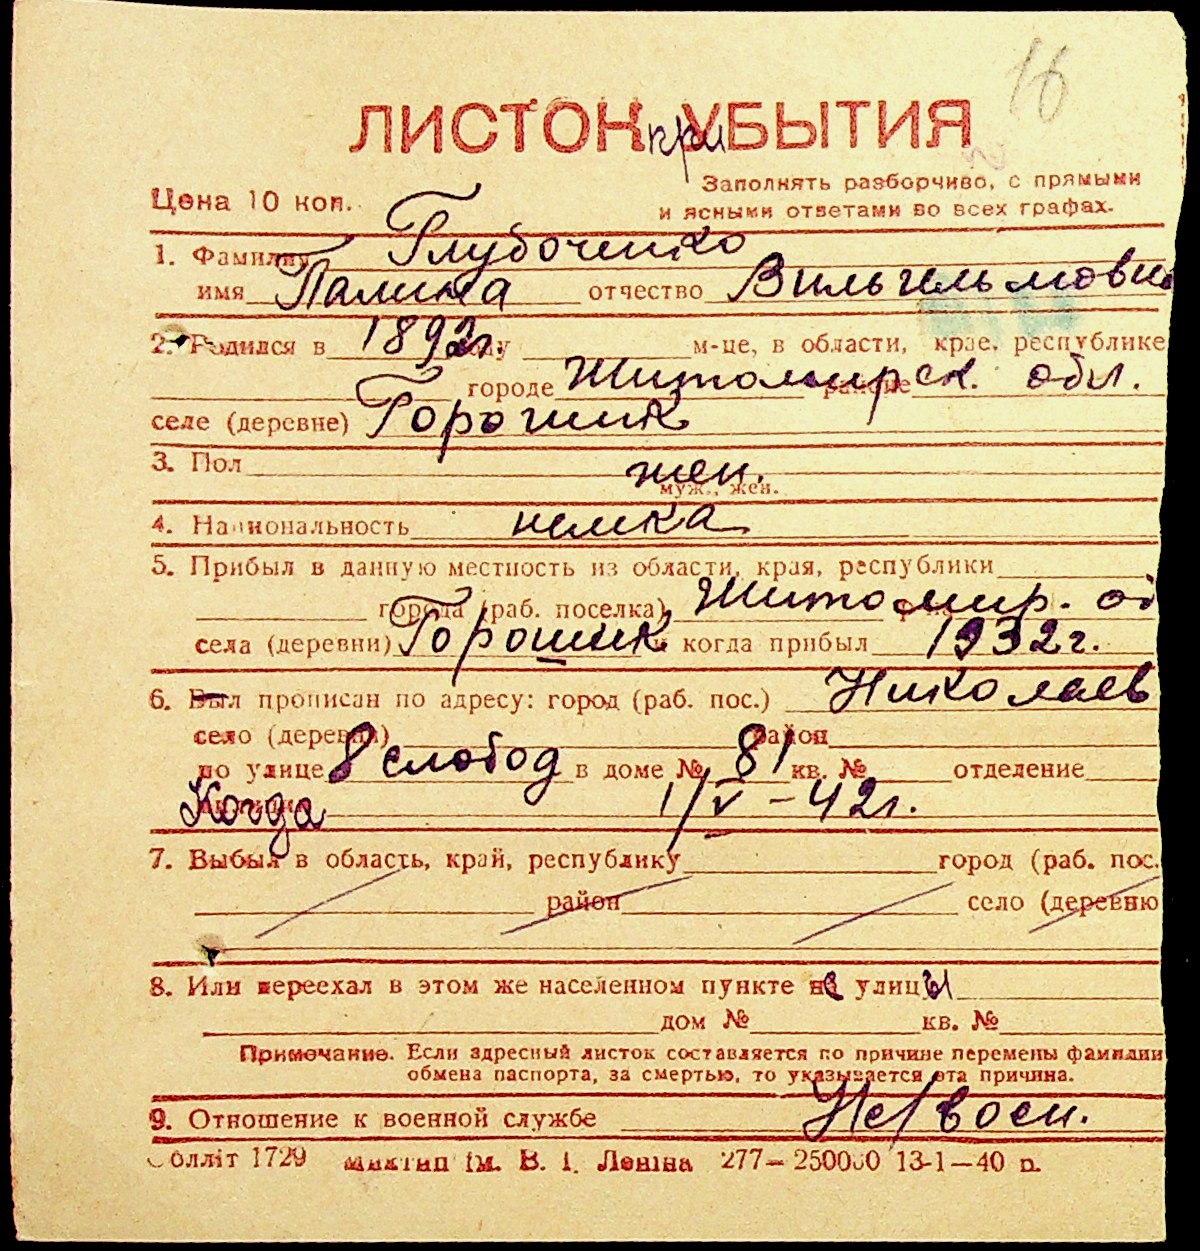 16
ЛИСТОК при УБЫТИЯ
Цена 10 коп.
Заполнять разборчиво, с прямыми
и ясными ответами во всех графах.
1. Фамилия Глубоченко
имя Палина отчество Вильгельмовна
2. Родился в 1892г. году м-це, в области, крае, республике
городе Житомирск. обл. районе
селе (деревне) Горошик
3. Пол жен.
муж., жен.
4. Национальность немка
5. Прибыл в данную местность из области, края, республики
города (раб. поселка) Житомир. об
села (деревни) Горошик и когда прибыл 1932г.
6. Был прописан по адресу: город (раб. пос.) Николаев
село (деревня) район
по улице 8 слобод в доме № 81 кв. № отделение
Когда 1/V-42г.
7. Выбыл в область, край, республику город (раб. пос.
район село (деревню
8. Или переехал в этом же населенном пункте с улицы
дом № кв. №
Примечание. Если адресный листок составляется по причине перемены фамилии
обмена паспорта, за смертью, то указывается эта причина.
9. Отношение к военной службе Не/воен.
Облліт 1729 ім. В. І. Леніна 277—250000 13-1—40 р.